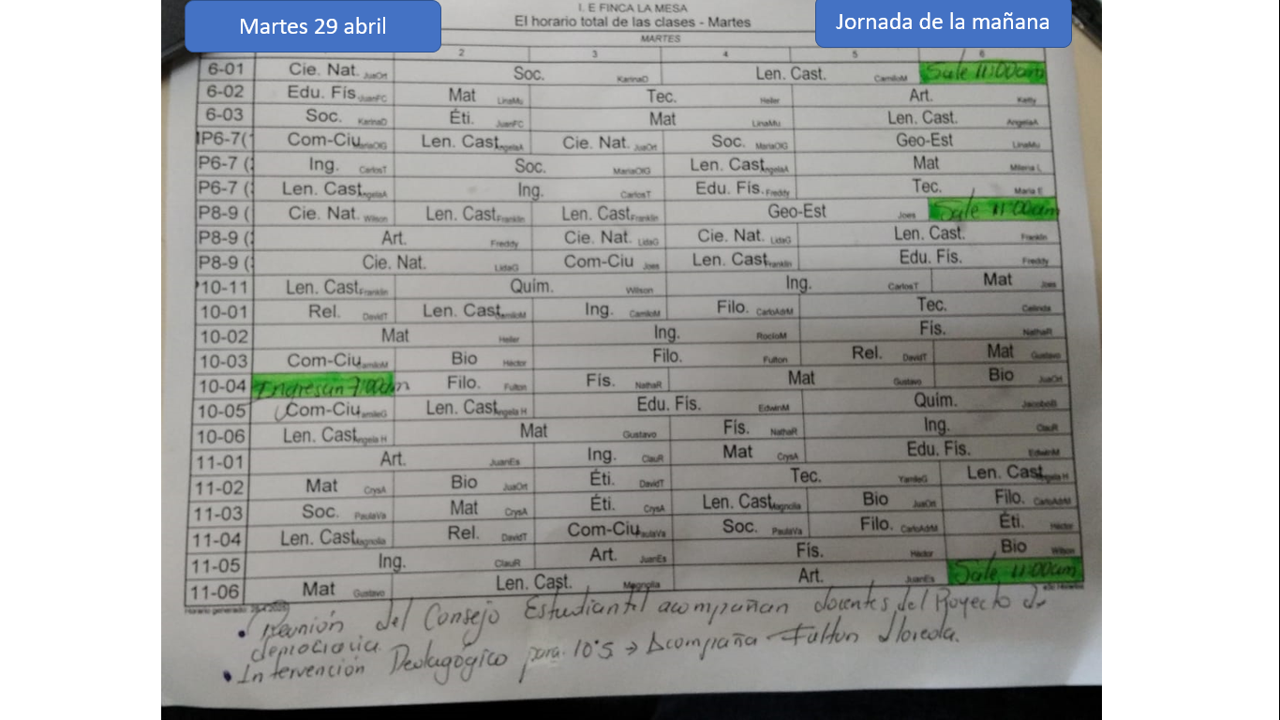 Martes 29 abril
Jornada de la mañana
I. E FINCA LA MESA
El horario total de las clases - Martes
MARTES
2 3 4 5 6
6-01 Cie. Nat. JuaOrt Soc. KarinaD Len. Cast. CamiloM Sale 11:00am
6-02 Edu. Fís. JuanFC Mat LinaMu Tec. Heiler Art. Ketty
6-03 Soc. KarinaD Éti. JuanFC Mat LinaMu Len. Cast. AngelaA
P6-7(1 Com-Ciu MariaOlG Len. Cast AngelaA Cie. Nat. JuaOrt Soc. MariaOlG Geo-Est LinaMu
P6-7 (2 Ing. CarlosT Soc. MariaOlG Len. Cast AngelaA Mat Milena L
P6-7 ( Len. Cast AngelaA Ing. CarlosT Edu. Fís. Freddy Tec. Maria E
P8-9 ( Cie. Nat. Wilson Len. Cast Franklin Len. Cast Franklin Geo-Est Joes Sale 11:00am
P8-9 ( Art. Freddy Cie. Nat. LidaG Cie. Nat. LidaG Len. Cast. Franklin
P8-9 ( Cie. Nat. LidaG Com-Ciu Joes Len. Cast Franklin Edu. Fís. Freddy
10-11 Len. Cast Franklin Quim. Wilson Ing. CarlosT Mat Joes
10-01 Rel. DavidT Len. Cast CamiloM Ing. CamiloM Filo. CarloAdrM Tec. Celinda
10-02 Mat Heiler Ing. RocioM Fís. NathaR
10-03 Com-Ciu CamiloM Bio Héctor Filo. Fulton Rel. DavidT Mat Gustavo
10-04 Ingresan 7:00am Filo. Fulton Fís. NathaR Mat Gustavo Bio JuaOrt
10-05 Com-Ciu YamileG Len. Cast Angela H Edu. Fís. EdwinM Quim. JacoboB
10-06 Len. Cast Angela H Mat Gustavo Fís. NathaR Ing. ClauR
11-01 Art. JuanEs Ing. ClauR Mat CrysA Edu. Fís. EdwinM
11-02 Mat CrysA Bio JuaOrt Éti. DavidT Tec. YamileG Len. Cast Angela H
11-03 Soc. PaulaVa Mat CrysA Éti. CrysA Len. Cast Magnolia Bio JuaOrt Filo. CarloAdrM
11-04 Len. Cast Magnolia Rel. DavidT Com-Ciu PaulaVa Soc. PaulaVa Filo. CarloAdrM Éti. Héctor
11-05 Ing. ClauR Art. JuanEs Fís. Héctor Bio Wilson
11-06 Mat Gustavo Len. Cast. Magnolia Art. JuanEs Sale 11:00am
Horario generado:
• Reunión del Consejo Estudiantil acompañan docentes del Proyecto de
democracia.
• Intervención Pedagógico para 10°5 → Acompaña Fulton Lloreda.